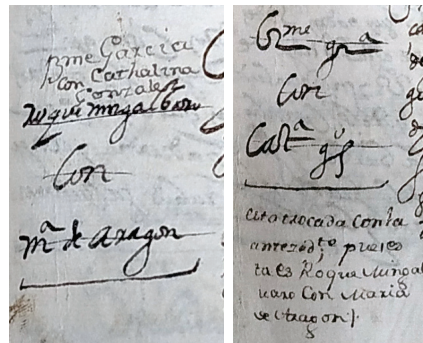 Bme Garcia
con Cathalina
Gonzalez
Roque mingalbaro
Con
ma de aragon
Bme gra
Con
Cata gs
esta trocada Con la
anteredto pues es
ta es Roque Mingal
uaro Con Maria
de Aragon